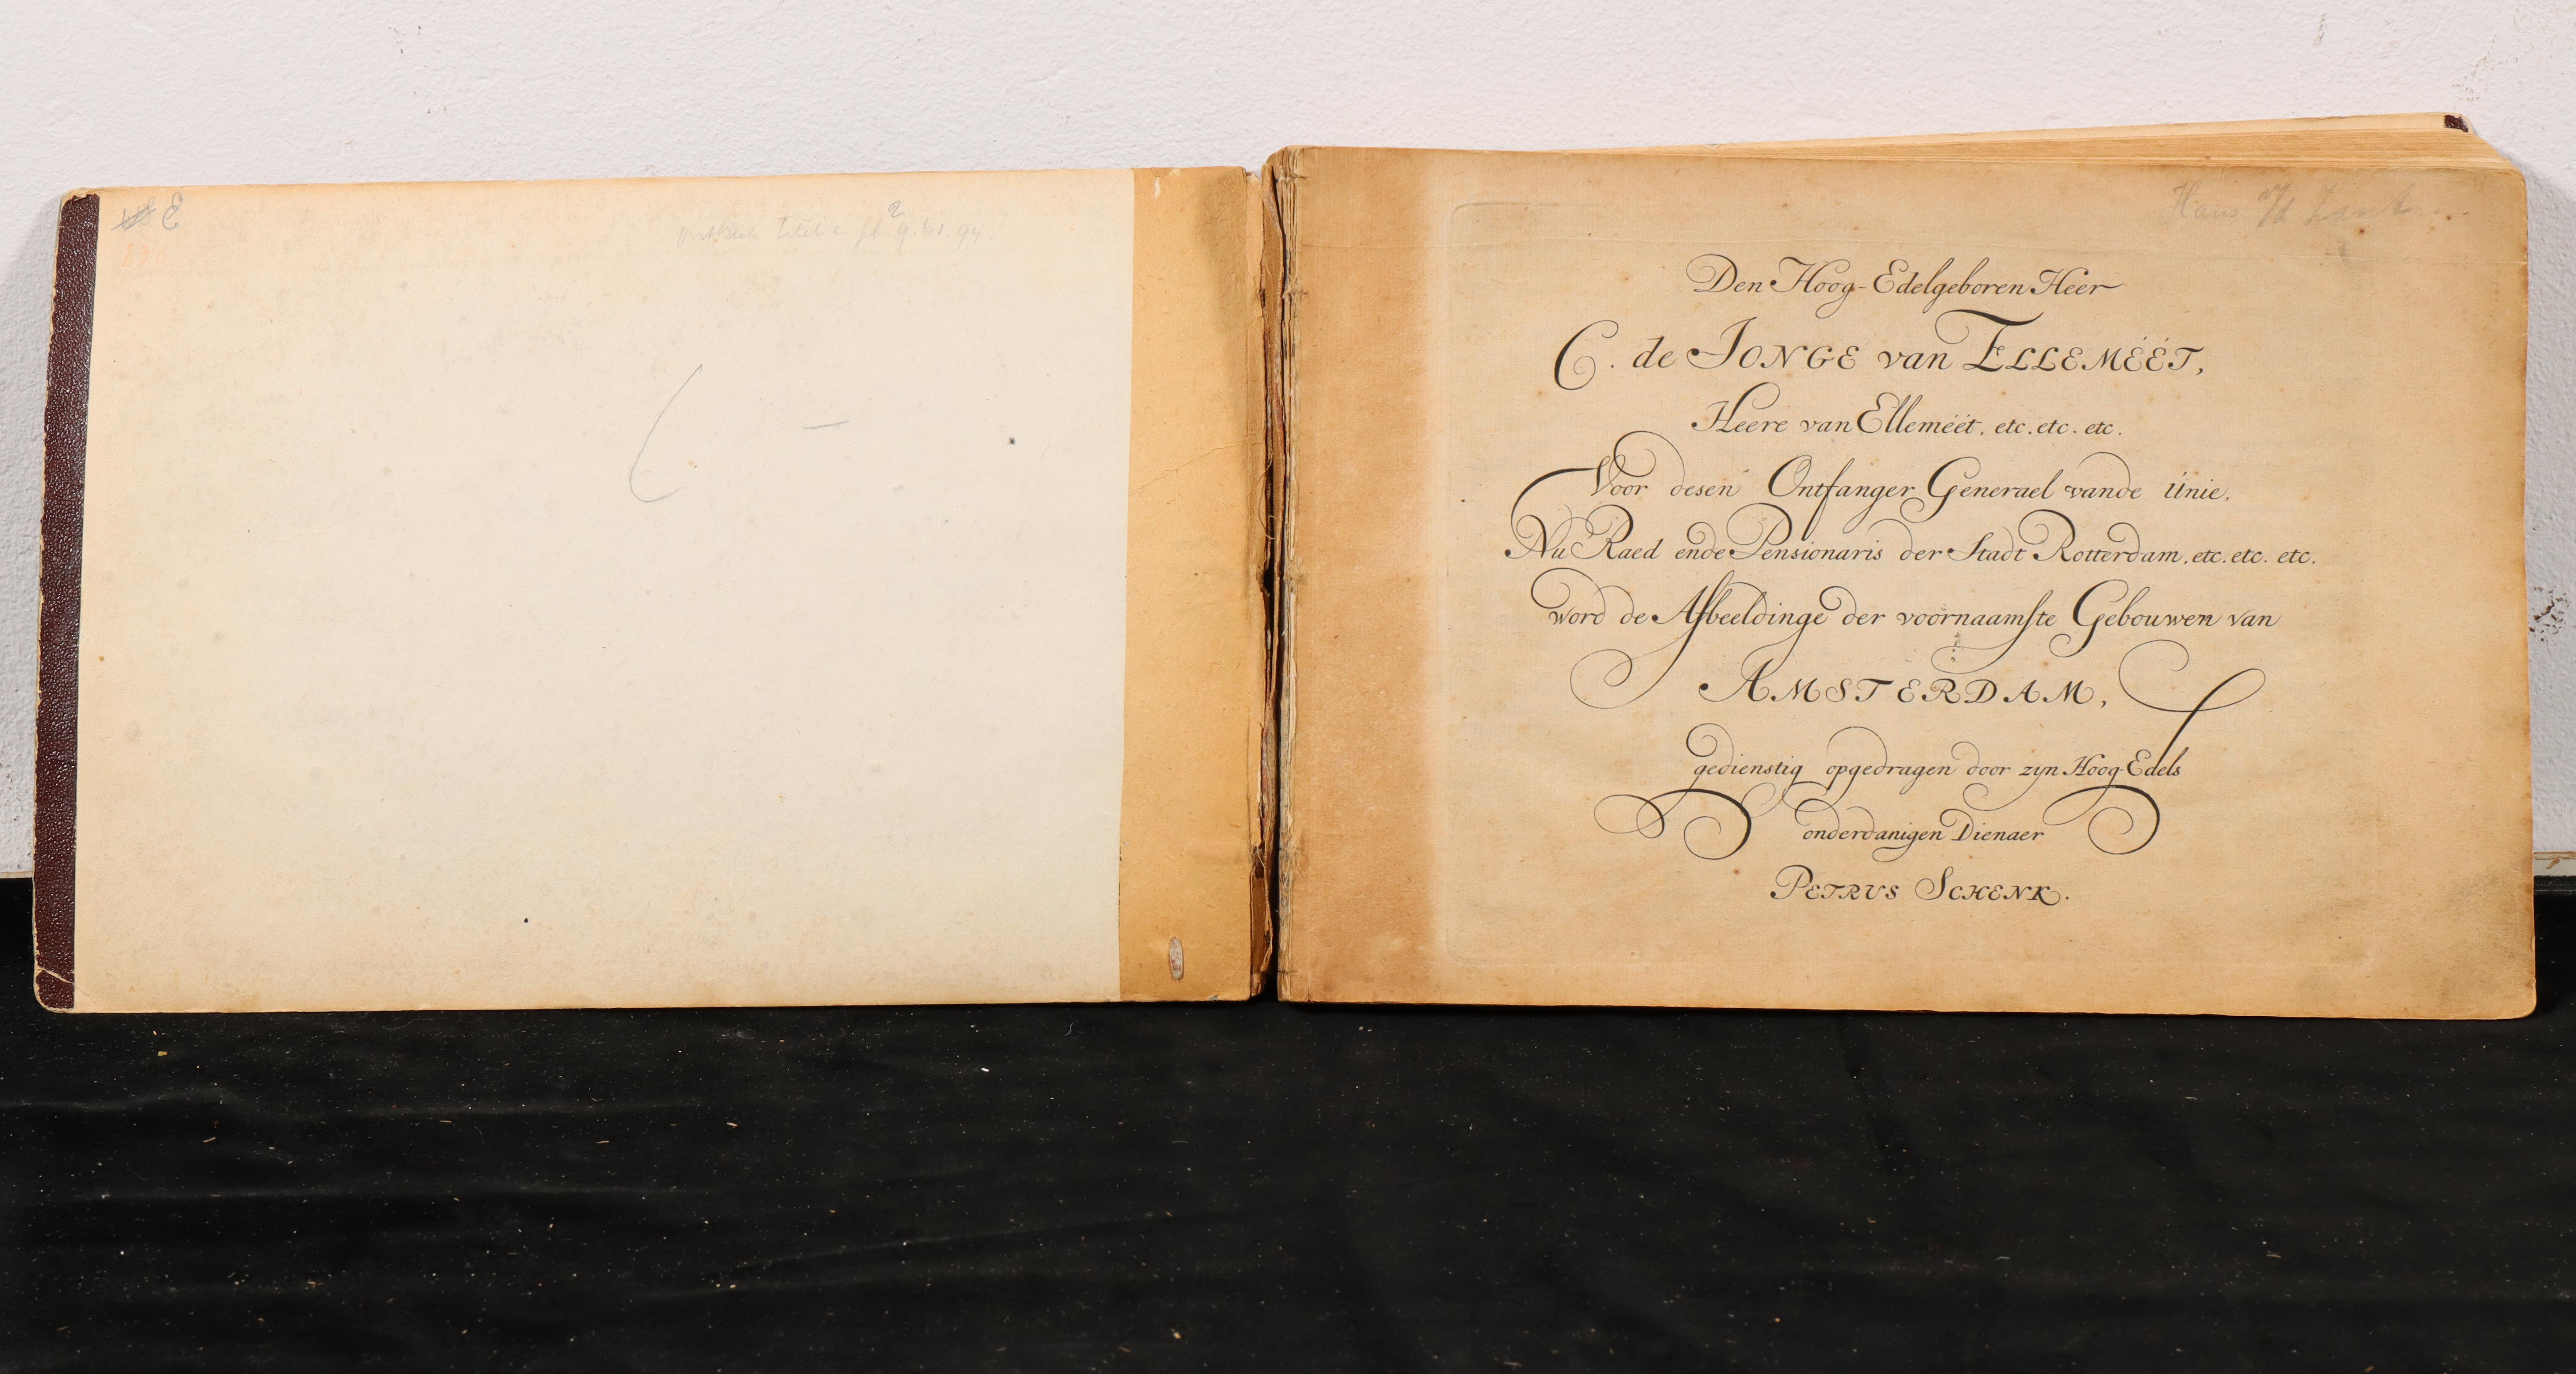 E
titel
Hans v/d Zant
Den Hoog-Edelgeboren Heer
C. de JONGE van ELLEMÉÉT,
Heere van Elleméét, etc. etc. etc.
Voor desen Ontfanger Generael vande Unie,
Nu Raed ende Pensionaris der Stadt Rotterdam, etc. etc. etc.
word de Afbeeldinge der voornaamste Gebouwen van
AMSTERDAM,
gedienstig opgedragen door zyn Hoog-Edels
onderdanigen Dienaer
PETRUS SCHENK.